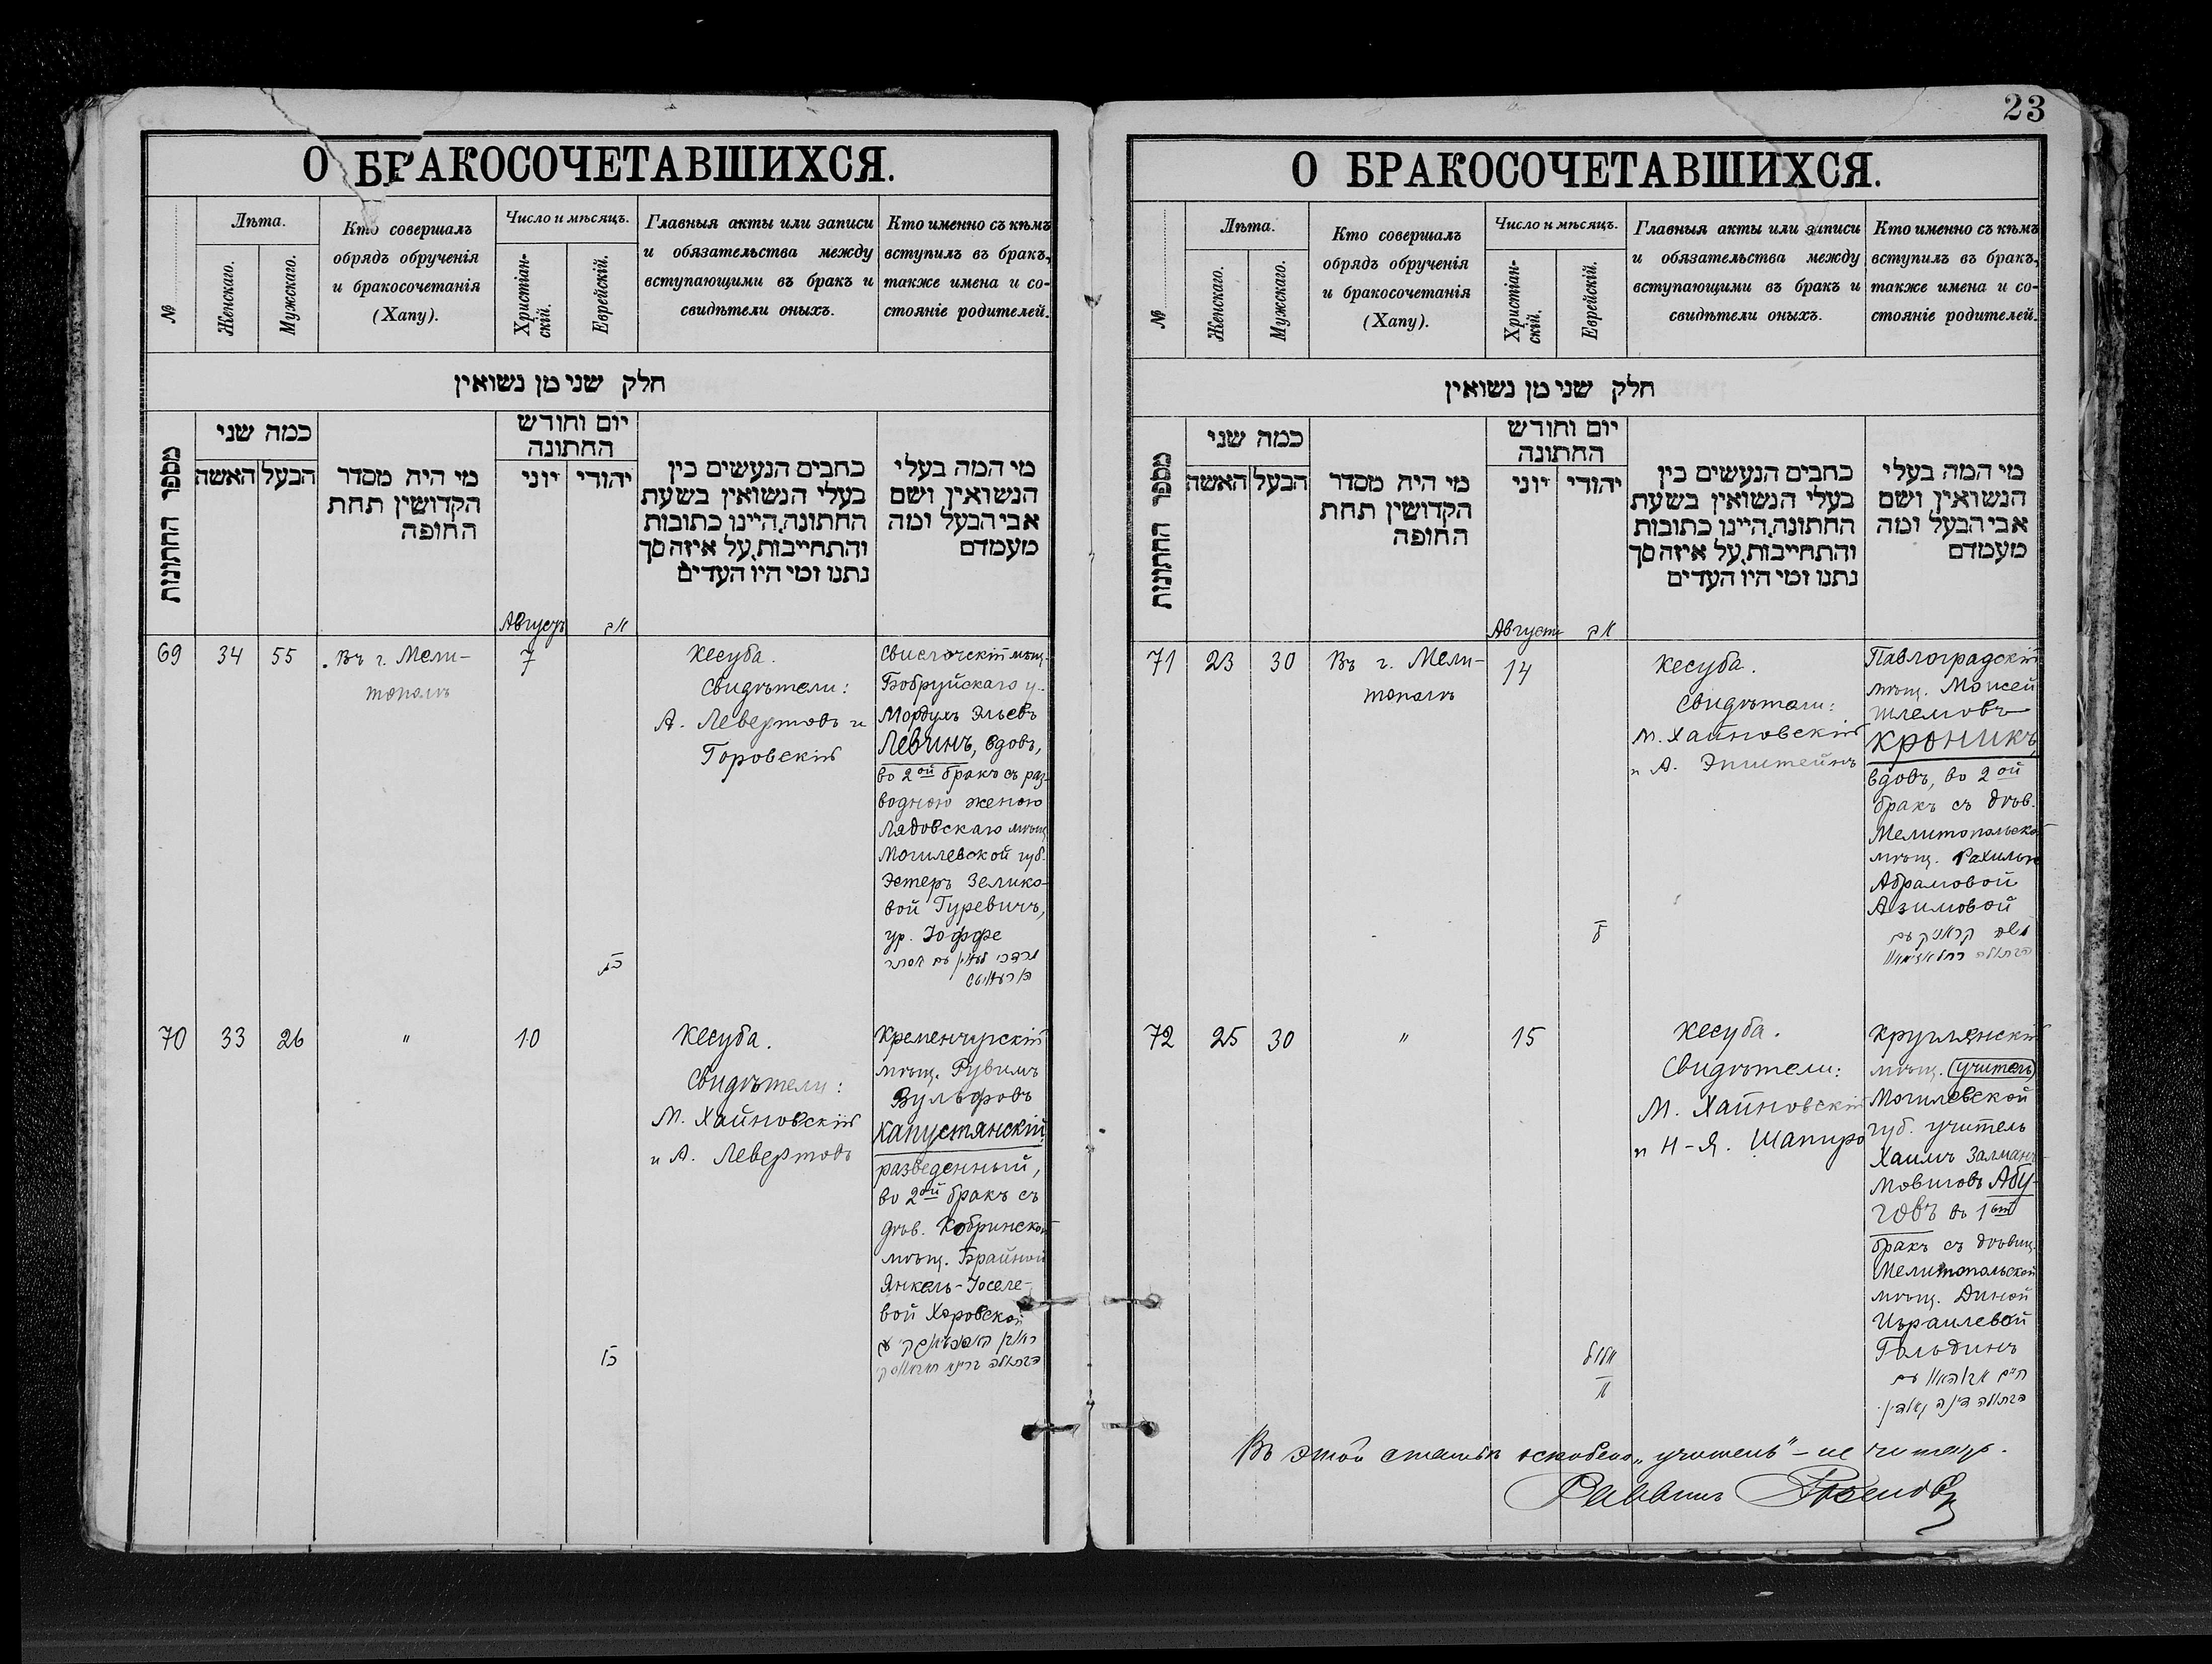 О БРАКОСОЧЕТАВШИХСЯ.
№
Лѣта.
Женскаго.
Мужскаго.
Кто совершалъ
обрядъ обрученія
и бракосочетанія
(Хапу).
Число и мѣсяцъ.
Христіан-
скій.
Еврейскій.
Главныя акты или записи
и обязательства между
вступающими въ бракъ и
свидѣтели оныхъ.
Кто именно съ кѣмъ
вступилъ въ бракъ,
также имена и со-
стояніе родителей.
חלק שני מן נשואין
מספר החתונות
כמה שני
האשה
הבעל
מי היה מסדר
הקדושין תחת
החופה
יום וחודש
החתונה
יוני
יהודי
כתבים הנעשים בין
בעלי הנשואין בשעת
החתונה, היינו כתובות
והתחייבות, על איזה סך
נתנו ומי היו העדים
מי המה בעלי
הנשואין ושם
אבי הבעל ומה
מעמדם
Августъ
אב
69
34
55
Въ г. Мели-
тополѣ
7
כג
Кесуба.
Свидѣтели:
А. Левертовъ и
Горовскій
Свислочскій мѣщ.
Бобруйскаго у.
Мордухъ Эльевъ
Левинъ, вдовъ,
во 2ой бракъ съ раз-
водною женою
Лядовскаго мѣщ.
Могилевской губ.
Эстеръ Зелико-
вой Гуревичъ,
ур. Іоффе
70
33
26
"
10
כו
Кесуба.
Свидѣтели:
М. Хайновскій
и А. Левертовъ
Кременчугскій
мѣщ. Рувимъ
Вульфовъ
Капустянскій,
разведенный,
во 2ой бракъ съ
дѣв. Кобринской
мѣщ. Брайной
Янкель-Іоселе-
вой Хоровской
23
О БРАКОСОЧЕТАВШИХСЯ.
№
Лѣта.
Женскаго.
Мужскаго.
Кто совершалъ
обрядъ обрученія
и бракосочетанія
(Хапу).
Число и мѣсяцъ.
Христіан-
скій.
Еврейскій.
Главныя акты или записи
и обязательства между
вступающими въ бракъ и
свидѣтели оныхъ.
Кто именно съ кѣмъ
вступилъ въ бракъ,
также имена и со-
стояніе родителей.
חלק שני מן נשואין
מספר החתונות
כמה שני
האשה
הבעל
מי היה מסדר
הקדושין תחת
החופה
יום וחודש
החתונה
יוני
יהודי
כתבים הנעשים בין
בעלי הנשואין בשעת
החתונה, היינו כתובות
והתחייבות, על איזה סך
נתנו ומי היו העדים
מי המה בעלי
הנשואין ושם
אבי הבעל ומה
מעמדם
Августъ
אב
71
23
30
Въ г. Мели-
тополѣ
14
ל
Кесуба.
Свидѣтели:
М. Хайновскій
и А. Эпштейнъ
Павлоградскій
мѣщ. Моисей
Шлемовъ
Кроникъ,
вдовъ, во 2ой
бракъ съ дѣв.
Мелитопольской
мѣщ. Рахилью
Абрамовой
Азимовой
משה קראניק עם
72
25
30
"
15
אלול
א
Кесуба.
Свидѣтели:
М. Хайновскій
и Н-Я. Шапиро
Круглянскій
мѣщ. (учитель)
Могилевской
губ. учитель
Хаимъ Залман-
Мовшовъ Абу-
говъ въ 1ый
бракъ съ дѣвиц.
Мелитопольской
мѣщ. Диной
Израилевой
Гольдинъ
Въ этой статьѣ оскоблено „учитель" – не читать.
Раввинъ